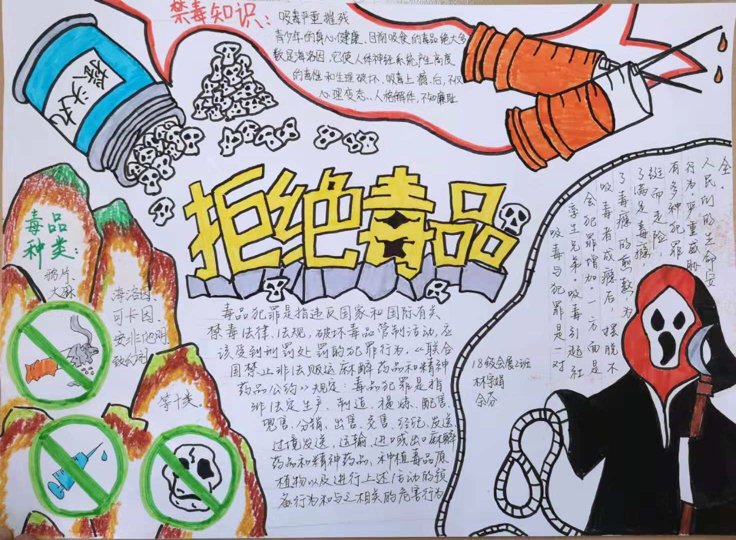 禁毒知识：吸毒严重摧残
青少年的身心健康，目前吸食的毒品绝大多
数是海洛因，它使人体神经系统产生高度
的毒性和生理破坏、吸毒上瘾后，不仅
心理变态、人格解体，不知廉耻
摇头丸
拒绝毒品
毒品
种类：
鸦片、
大麻
海洛因、
可卡因、
安非他明
致幻剂
等十类、
毒品犯罪是指违反国家和国际有关
禁毒法律、法规，破坏毒品管制活动，应
该受到刑罚处罚的犯罪行为，《联合
国禁止非法贩运麻醉药品和精神
药品公约》规定：毒品犯罪是指
非法定生产、制造、提炼、配售、
兜售、分销、出售、交售、经纪、发送、
过境发送、运输、进口或出口麻醉
药品和精神药品、种植毒品原
植物以及进行上述活动的预
备行为和与之相关的危害行为
吸毒与犯罪是一对
孪生兄弟，吸毒引起社
会犯罪增加，一方面是
吸毒者成瘾后，摆脱不
了毒瘾的煎熬，为
了满足毒瘾，
铤而走险，
有多种犯罪
行为，严重威胁
人民的生命安
全.
18级会展2班
林学娟
余芬